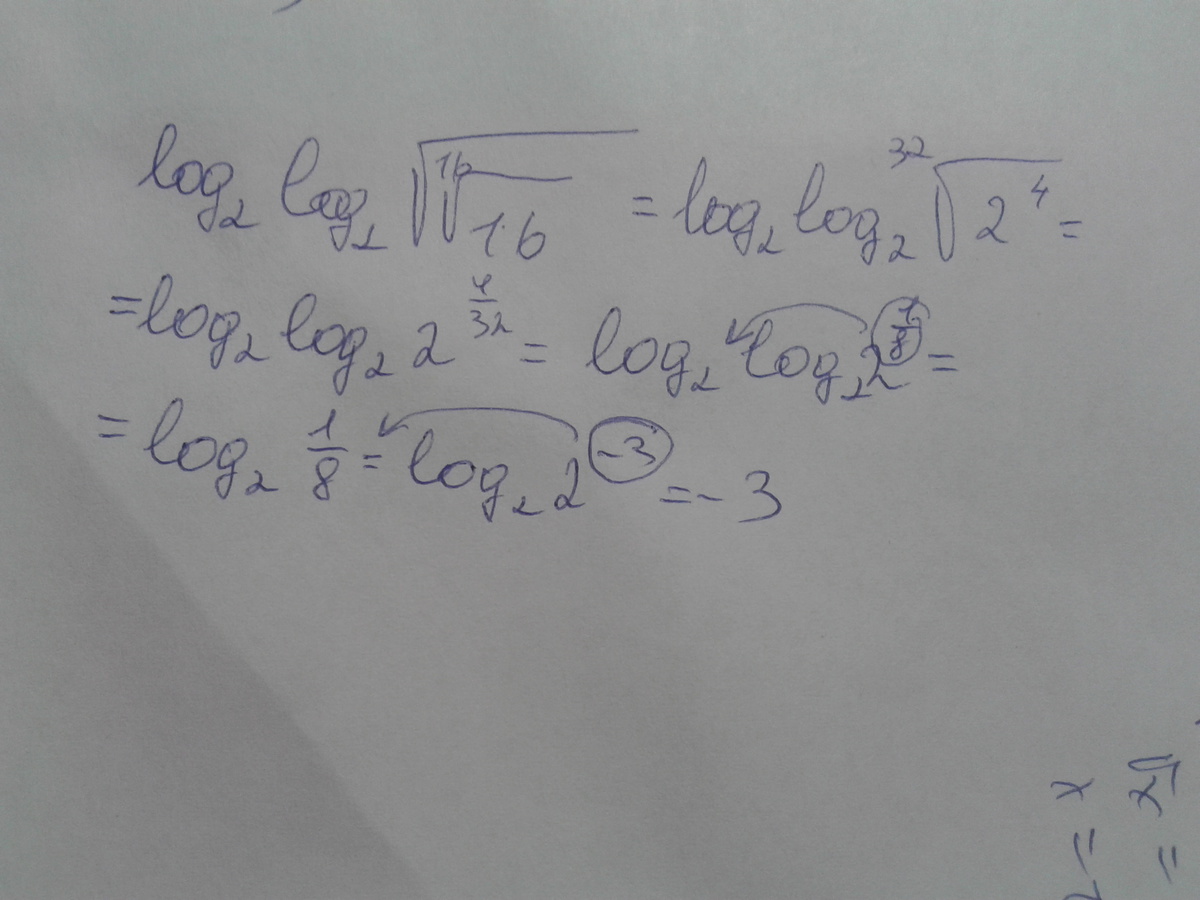 log₂ log₂ √(¹⁶√16) = log₂ log₂ ³²√(2⁴) =
= log₂ log₂ 2^(4/32) = log₂ log₂ 2^(1/8) =
= log₂ 1/8 = log₂ 2^(-3) = -3